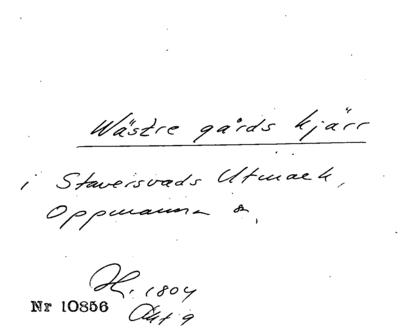 Wästre gårds kjärr
i Staversvads Utmark,
Oppmanna s.
H. 1804
Akt 9
Nr 10856